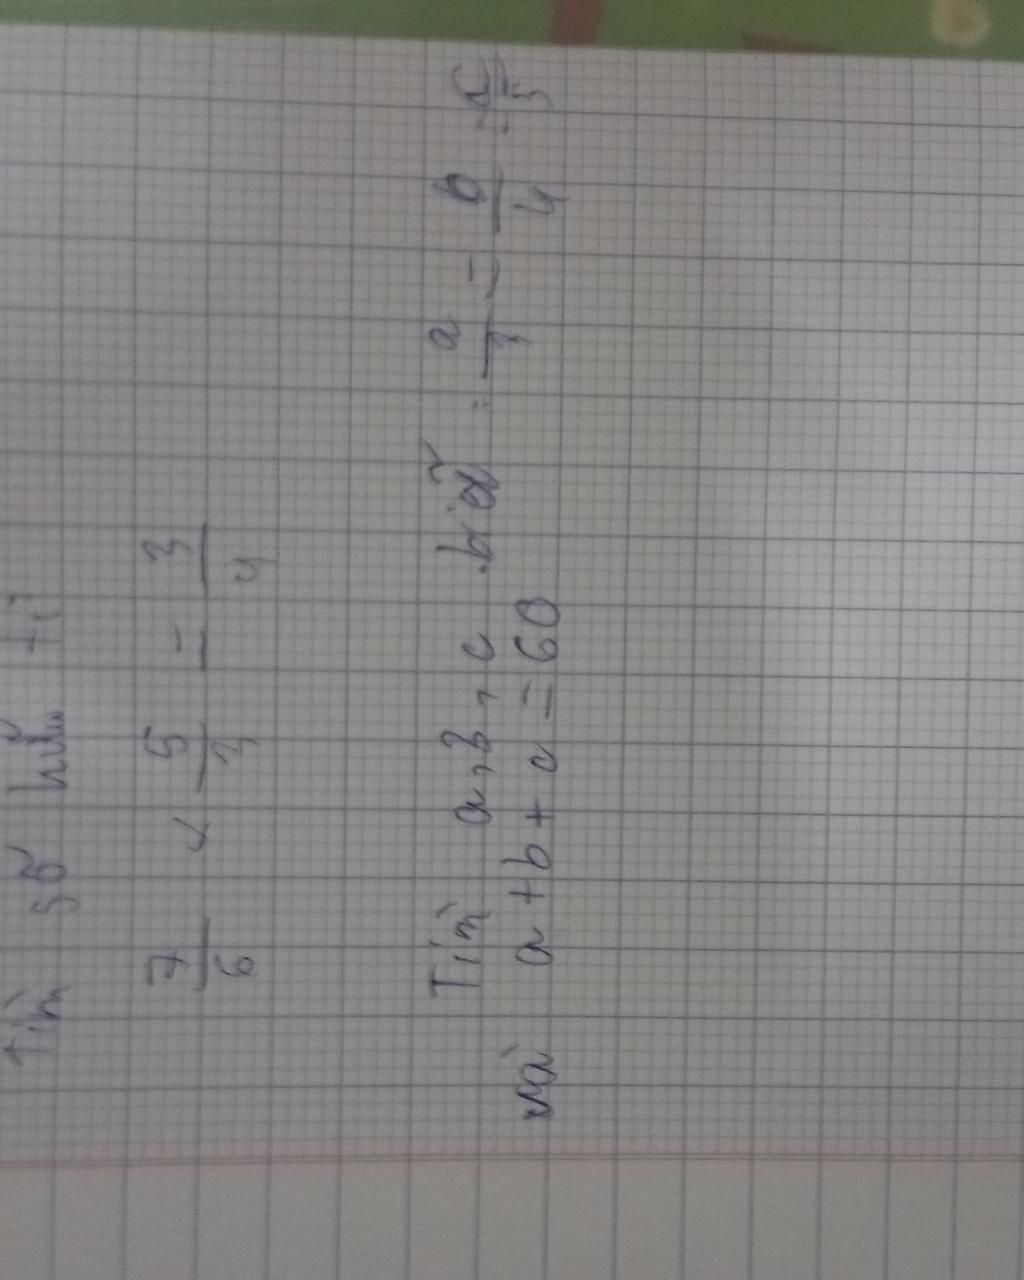 Tìm số hữu tỉ
7/6 × 5/3 - 3/4
Tìm a, b, c biết : a/3 = b/4 = c/5
và a + b + c = 60